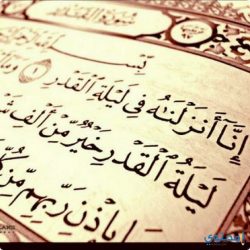 سورة القدر
بِسْمِ ٱللَّهِ
إِنَّآ أَنزَلْنَٰهُ فِى لَيْلَةِ ٱلْقَدْرِ ١ وَمَآ
لَيْلَةُ ٱلْقَدْرِ خَيْرٌ مِّنْ أَلْفِ
بِإِذْنِ رَبِّهِم مِّن كُلِّ